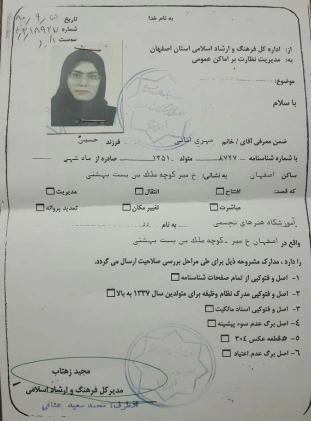 به نام خدا
تاریخ
شماره
پیوست
از: اداره کل فرهنگ و ارشاد اسلامی استان اصفهان
به: مدیریت نظارت بر اماکن عمومی
موضوع:
با سلام
ضمن معرفی آقای / خانم مهری امامی فرزند حسین
با شماره شناسنامه ۸۷۲۷ متولد ۱۳۵۱ صادره از
ساکن اصفهان به نشانی: خ میر کوچه ملک بن بست بهشتی
که قصد: افتتاح انتقال مدیریت
مباشرت تغییر مکان تمدید پروانه
آموزشگاه هنرهای تجسمی به نام
واقع در اصفهان خ میر کوچه ملک بن بست بهشتی
را دارد، مدارک مشروحه ذیل برای طی مراحل بررسی صلاحیت ارسال می گردد.
۱- اصل و فتوکپی از تمام صفحات شناسنامه
۲- اصل و فتوکپی مدرک نظام وظیفه برای متولدین سال ۱۳۳۷ به بالا
۳- اصل و فتوکپی اسناد مالکیت
۴- اصل برگ عدم سوء پیشینه
۵- قطعه عکس ۳۰۴
۶- اصل برگ عدم اعتیاد
مجید زهتاب
مدیرکل فرهنگ و ارشاد اسلامی
از طرف: محمد سعید